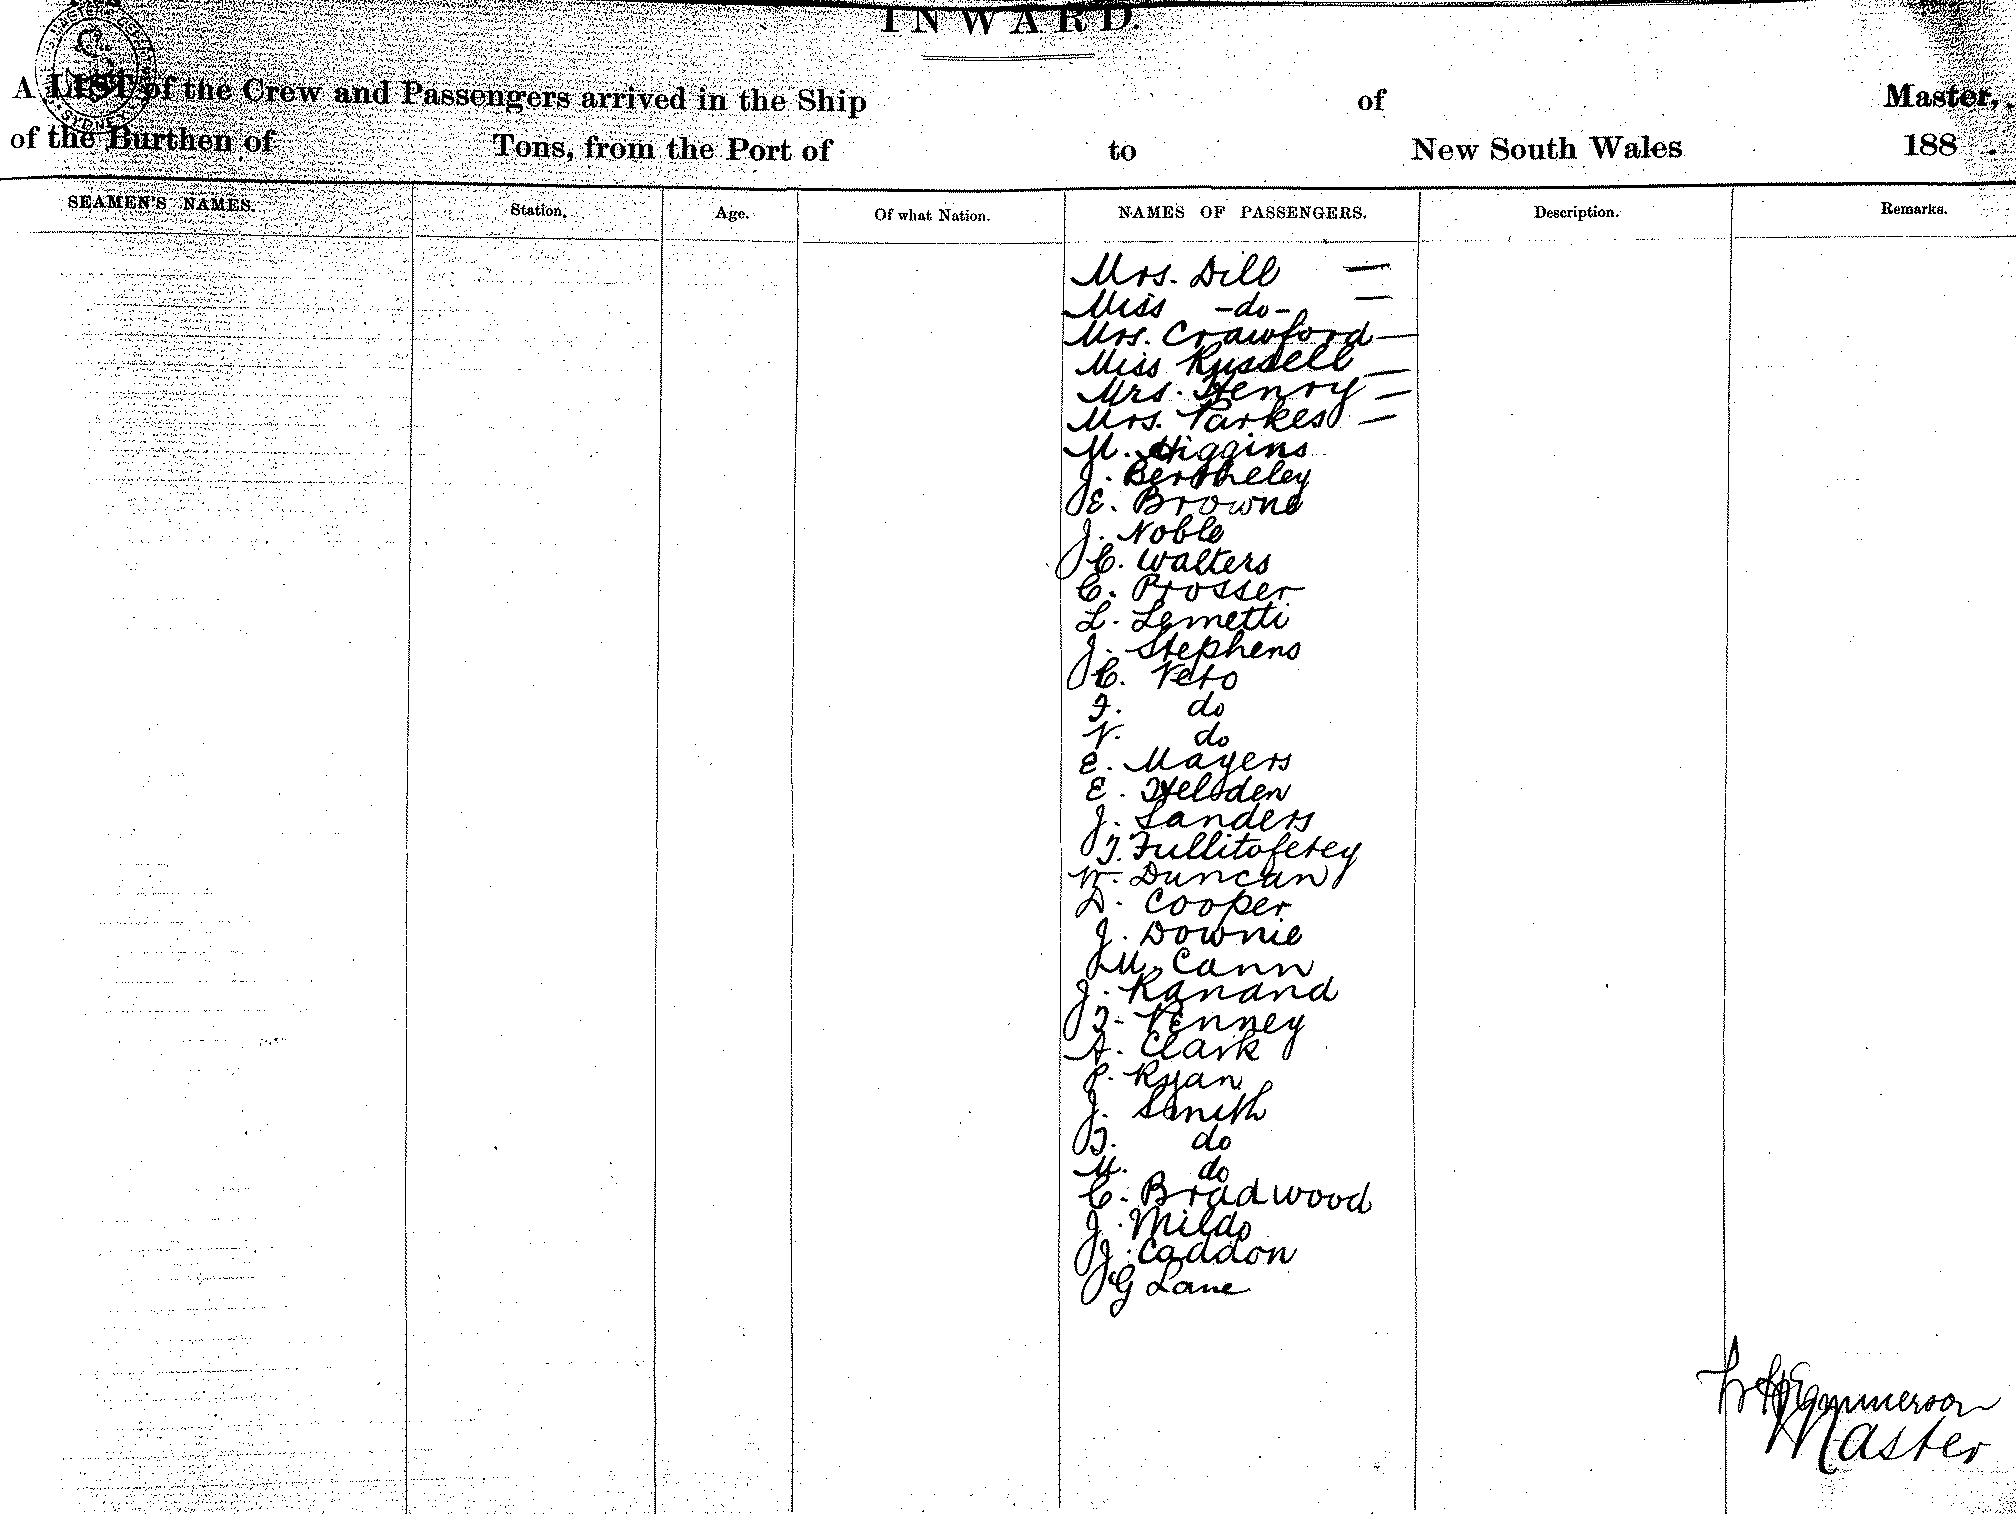 INWARD.
A LIST of the Crew and Passengers arrived in the Ship of Master,
of the Burthen of Tons, from the Port of to New South Wales 188 .
SEAMEN'S NAMES. Station. Age. Of what Nation. NAMES OF PASSENGERS. Description. Remarks.
Mrs. Dill —
Miss -do- —
Mrs. Crawford —
Miss Russell —
Mrs. Henry —
Mrs. Parkes —
M. Higgins
J. Bertheley
E. Browne
J. Noble
C. Walters
C. Prosser
L. Lemetti
J. Stephens
C. Veto
F. do
V. do
E. Mayers
E. Helsden
J. Sanders
T. Fullitoferey
W. Duncan
D. Cooper
J. Downie
M. Cann
J. Kanand
T. Penney
A. Clark
P. Ryan
J. Smith
T. do
M. do
C. Bradwood
J. Milds
J. Caddon
G Lane
Master